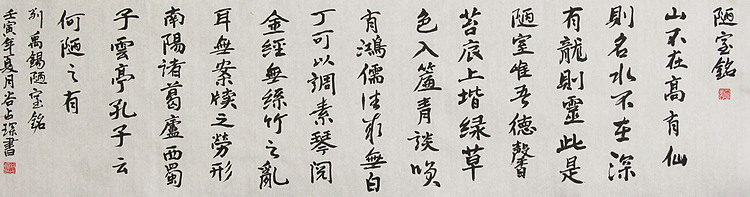 陋室銘
山不在高有仙
則名水不在深
有龍則靈此是
陋室惟吾德馨
苔痕上堦緑草
色入簾青談咲
有鴻儒往來無白
丁可以調素琴閱
金經無絲竹之亂
耳無案牘之勞形
南陽諸葛廬西蜀
子雲亭孔子云
何陋之有
刘禹錫陋室銘
壬寅年夏月谷占琛書